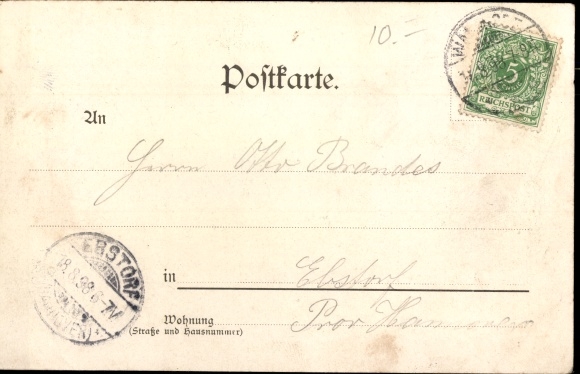 10.-
5
REICHSPOST
Postkarte.
An
Herrn Otto Brandes
EBSTORF
18.8.98. 6-7V
in
Ebstorf
Wohnung
(Straße und Hausnummer)
Prov Hannover